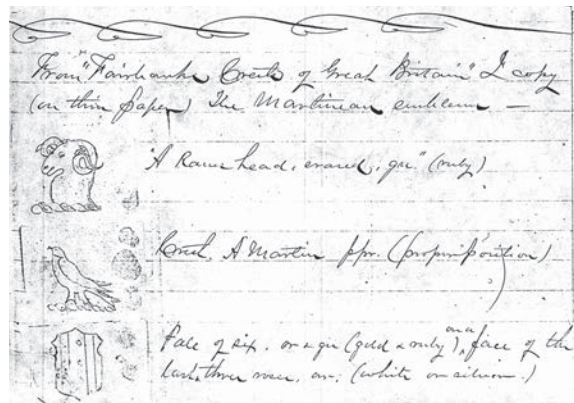 From "Fairbanks Crests of Great Britain" I copy
(on thin paper) The Martineau emblems —
"A Rams head, erased, gu." (ruby)
Crest, A Martin ppr. (proper position)
of six. or & gu (gold & ruby) on a of the
three roses, ar: (white or silver.)